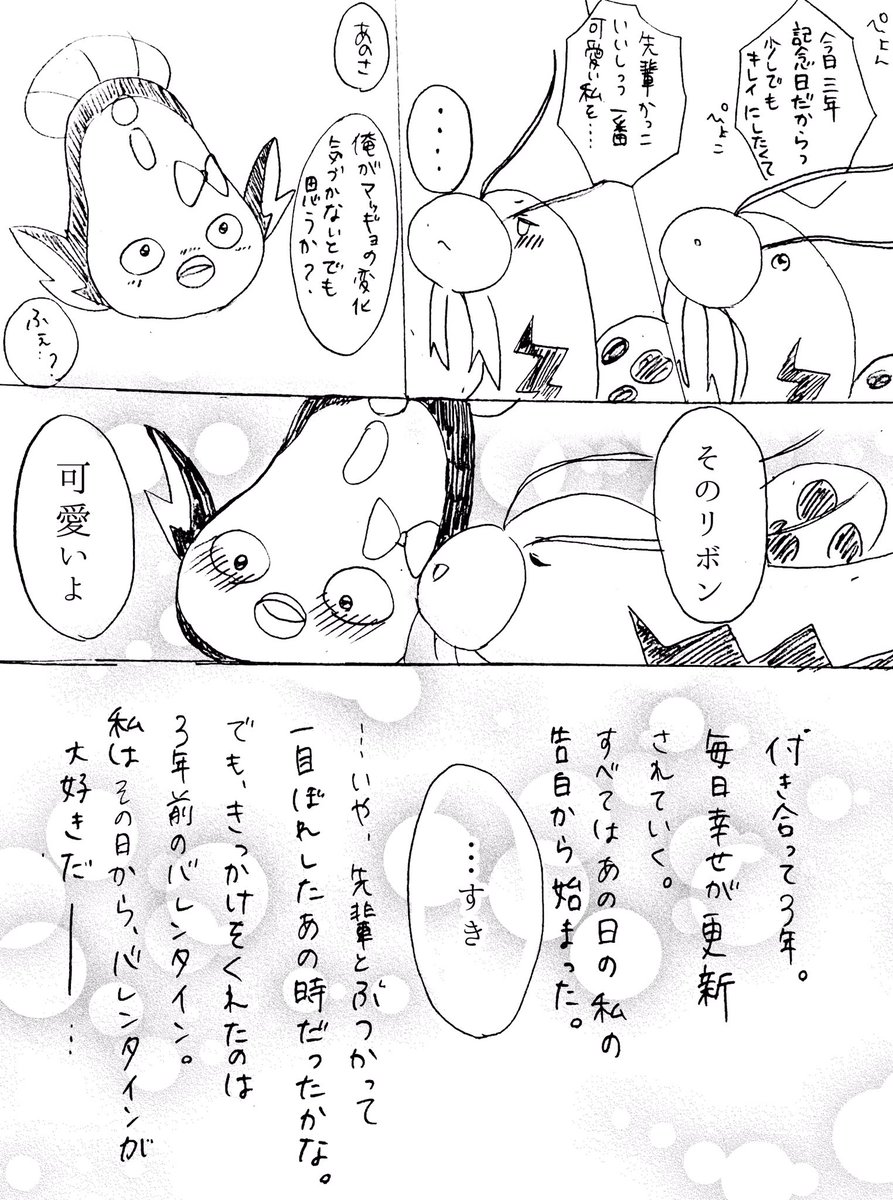 ぴょん
今日三年
記念日だからっ
少しでも
キレイにしたくて
ぴょこ
先輩かっこ
いいしっっ一番
可愛い私を……
・・・・
あのさ
俺がマッギョの変化
気づかないとでも
思うか？
ふぇ…？
そのリボン
可愛いよ
付き合って3年。
毎日幸せが更新
されていく。
すべてはあの日の私の
告白から始まった。
…すき
…いや、先輩とぶつかって
一目ぼれしたあの時だったかな。
でも、きっかけをくれたのは
3年前のバレンタイン。
私はその日から、バレンタインが
大好きだ――…